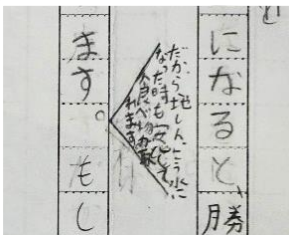 になると、勝
だから地しん、こう水に
なった時も安心して
食べ物が取
れます。
ます。もし